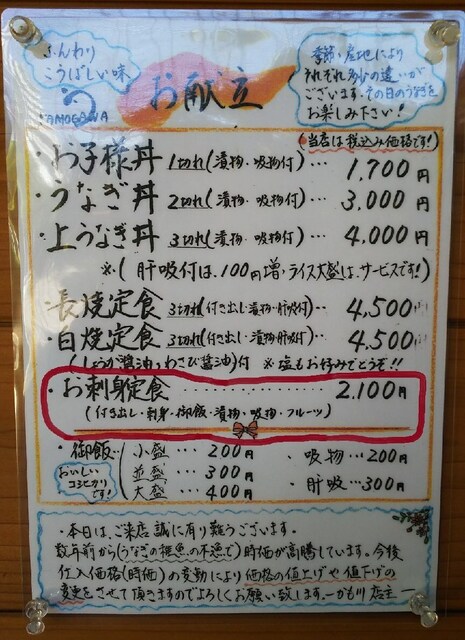 ふんわり
こうばしい味
KAMOGAWA
お献立
季節・産地により
それぞれ多少の違いが
ございます。その日のうなぎを
お楽しみ下さい!
(当店は税込み価格です!)
・お子様丼 1切れ(漬物・吸物付)… 1,700円
・うなぎ丼 2切れ(漬物・吸物付)… 3,000円
・上うなぎ丼 3切れ(漬物・吸物付)… 4,000円
※(肝吸付は、100円増,ライス大盛は、サービスです!)
・長焼定食 3切れ(付き出し・漬物・肝吸付)… 4,500円
・白焼定食 3切れ(付き出し・漬物・肝吸付)… 4,500円
(しょうが醤油,わさび醤油)付 ※塩もお好みでどうぞ!!
・お刺身定食 ………… 2,100円
(付き出し・刺身・御飯・漬物・吸物・フルーツ)
・御飯… 小盛 … 200円
並盛 … 300円
大盛 … 400円
おいしい
コシヒカリ
です!
・吸物 … 200円
・肝吸 … 300円
・本日は、ご来店誠に有り難うございます。
数年前から(うなぎの稚魚の不漁で)時価が高騰しています。今後
仕入価格(時価)の変動により価格の値上げや値下げの
変更をさせて頂きますのでよろしくお願い致します。ーかも川 店主ー